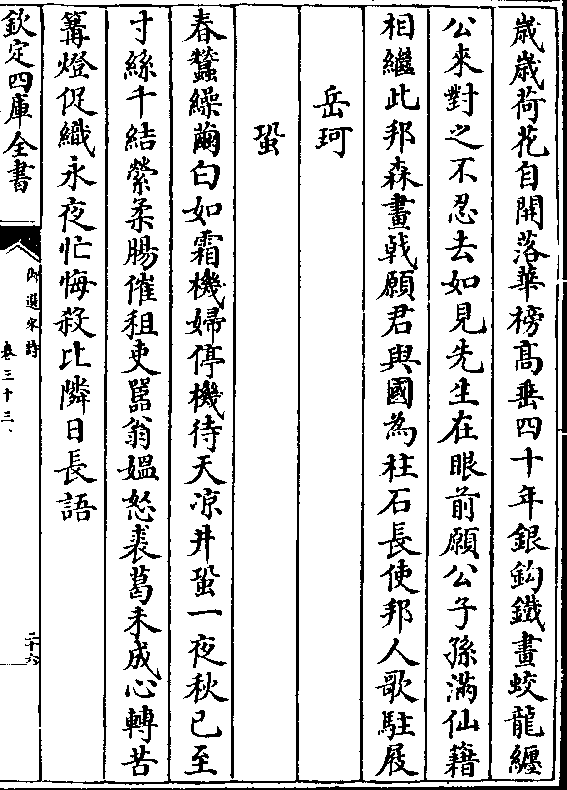 歲歲荷花自開落華榜髙垂四十年銀鈎鐵畫蛟龍纏
公來對之不忍去如見先生在眼前願公子孫滿仙籍
相繼此邦森畫戟願君與國為柱石長使邦人歌駐屐
岳珂
蛩
春蠶繰繭白如霜機婦停機待天凉井蛩一夜秋已至
寸絲千結縈柔腸催租吏囂翁媪怒裘葛未成心轉苦
篝燈促織永夜忙悔殺比隣日長語
欽定四庫全書
御選宋詩
卷三十三
二十六